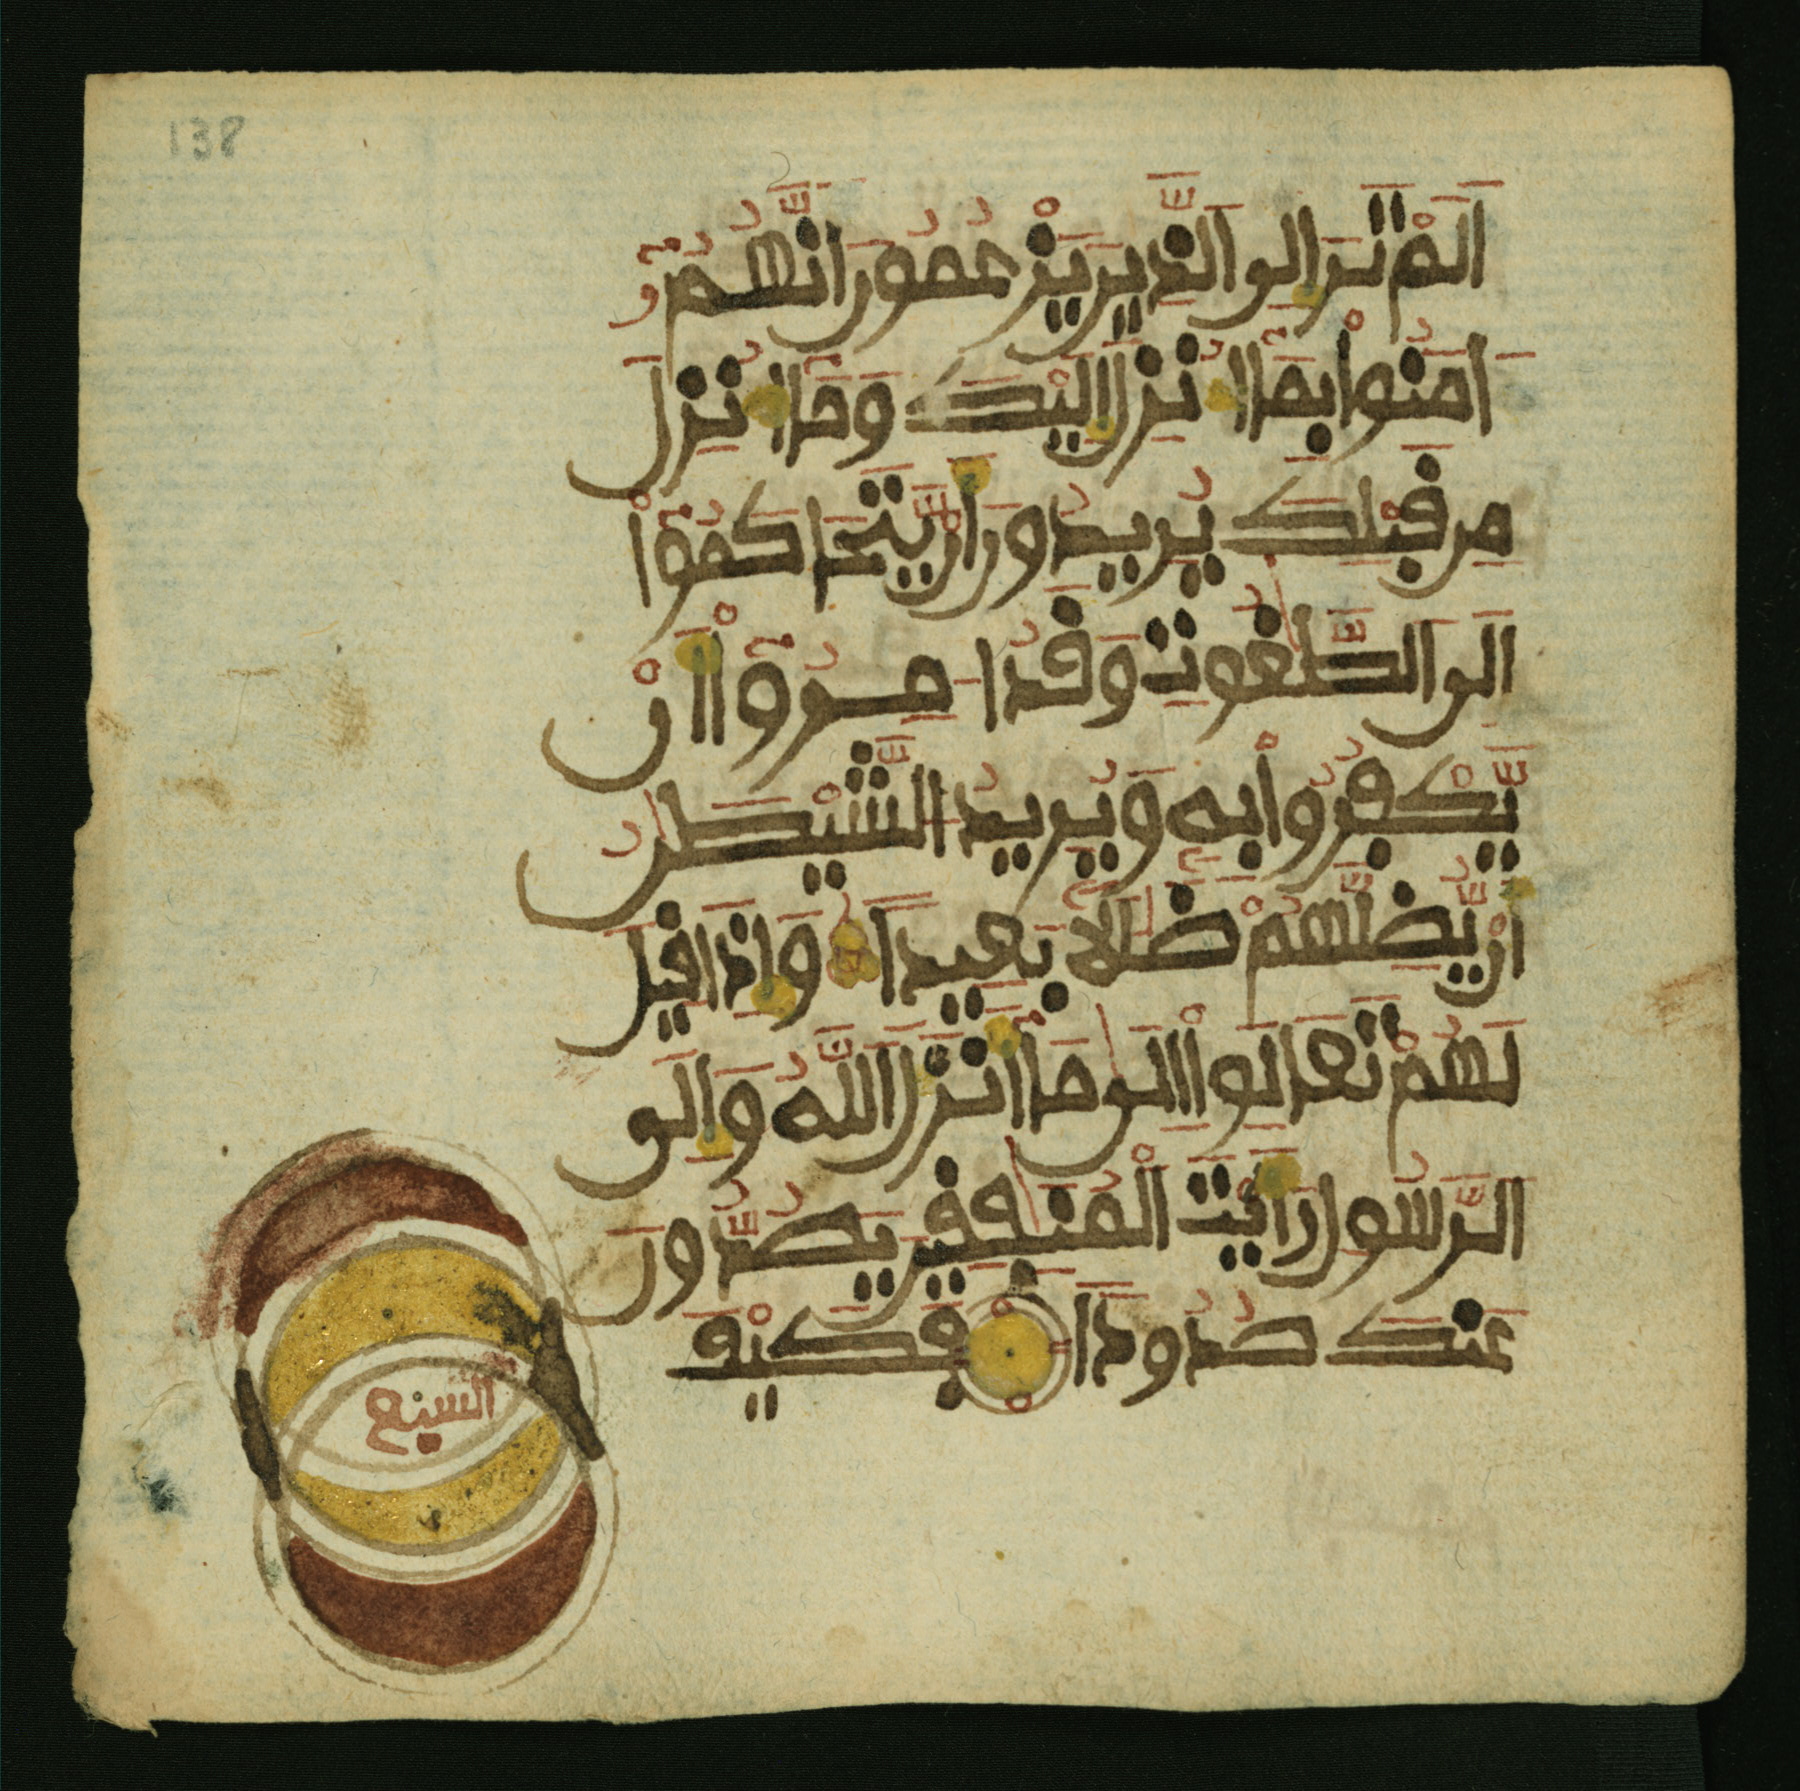 138
اَلَمْ تَرَ إِلَى الذِينَ يَزْعُمُونَ أَنَّهُمُۥٓ
ءَامَنُواْ بِمَآ أُنزِلَ إِلَيْكَ وَمَآ أُنزِلَ
مِن قَبْلِكَ يُرِيدُونَ أَنْ يَّتَحَاكَمُوٓاْ
إِلَى الطَّٰغُوتِ وَقَدُ ا۟مِرُوٓاْ أَنْ
يَّكْفُرُواْ بِهِۦ وَيُرِيدُ الشَّيْطَٰنُ
أَنْ يُّضِلَّهُمْ ضَلَٰلاَۢ بَعِيداٗ وَإِذَا قِيلَ
لَهُمْ تَعَالَوِاْ اِلَىٰ مَآ أَنزَلَ اَللَّهُ وَإِلَى
اَلرَّسُولِ رَأَيْتَ اَلْمُنَٰفِقِينَ يَصُدُّونَ
عَنكَ صُدُوداٗ فَكَيْفَ
السبع